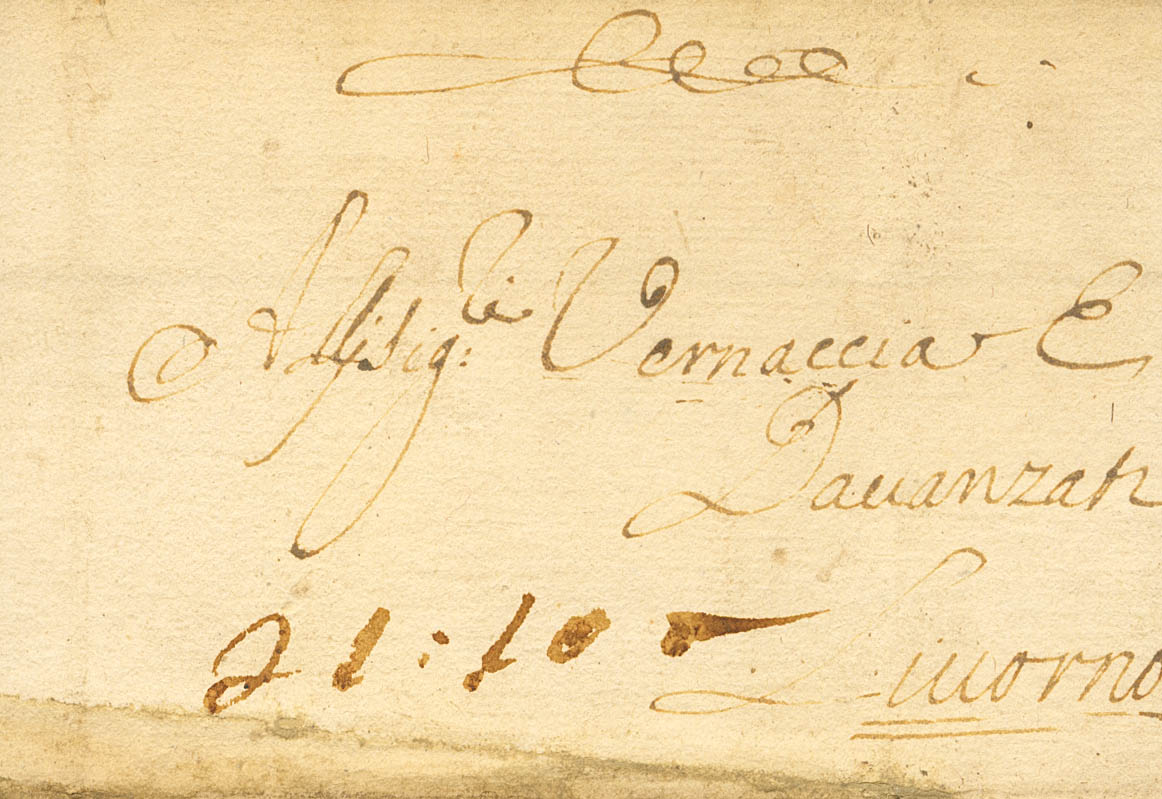 Alli Sig.ri Vernaccia E
Davanzati
21:10
Livorno